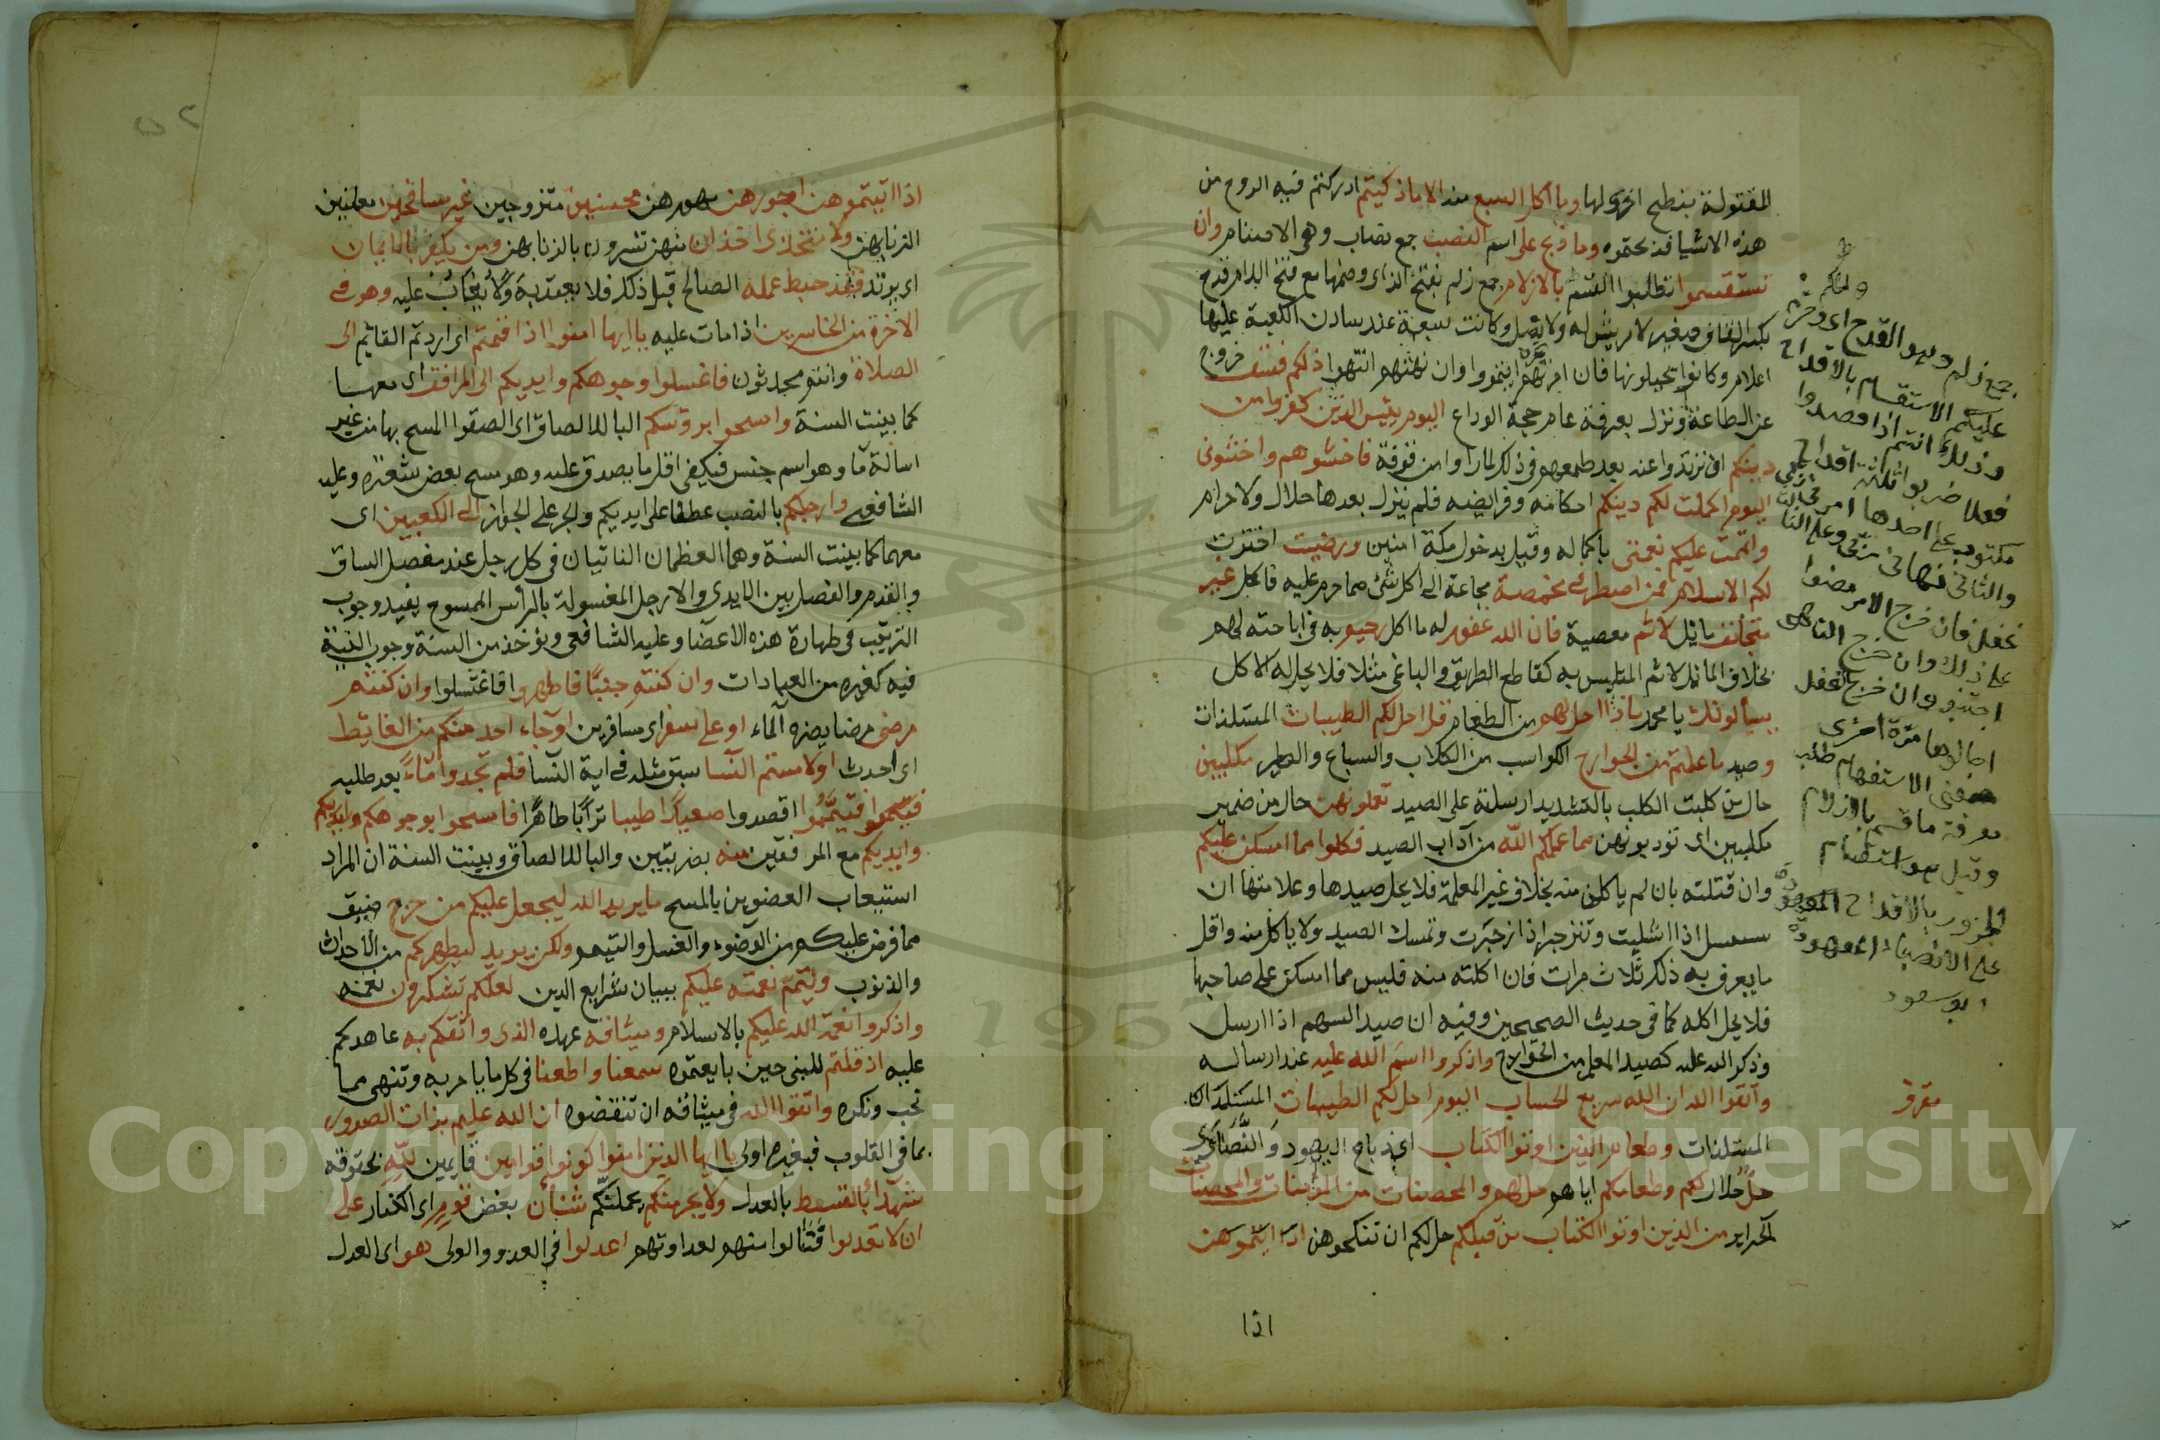 المقتولة بنطح اخرى لها وما اكل السبع منه الا ما ذكيتم ادركتم فيه الروح من
هذه الاشيا فذبحتموه وما ذبح على اسم النصب جمع نصاب وهى الاصنام وان
تستقسموا تطلبوا القسم بالازلام جمع زلم بفتح الزاى وضمها مع فتح اللام قدح
بكسر القاف صغير لا ريش له ولا نصل وكانت سبعة عند سادن الكعبة عليها
اعلام وكانوا يجيلونها فان امرتهم ايتمروا وان نهتهم انتهوا ذلكم فسق خروج
عن الطاعة ونزل بعرفة عام حجة الوداع اليوم يئس الذين كفروا من
دينكم ان ترتدوا عنه بعد طمعهم فى ذلك لما راوا من قوته فلا تخشوهم واخشونى
اليوم اكملت لكم دينكم احكامه وفرايضه فلم ينزل بعدها حلال ولا حرام
واتممت عليكم نعمتى باكماله وقيل بدخول مكة امنين ورضيت اخترت
لكم الاسلام فمن اضطر فى مخمصة مجاعة الى اكل شئ مما حرم عليه فاكل غير
متجانف مايل لاثم معصية فان الله غفور له ما اكل رحيم به فى اباحته لهم
بخلاف المايل لاثم المتلبس به كقاطع الطريق والباغى مثلا فلا يحل له الاكل
يسألونك يا محمد ماذا احل لهم من الطعام قل احل لكم الطيبات المستلذات
وصيد ما علمتم من الجوارح الكواسب من الكلاب والسباع والطير مكلبين
حال من كلبت الكلب بالتشديد ارسلته على الصيد تعلمونهن حال من ضمير
مكلبين اى تؤدبونهن مما علمكم الله من آداب الصيد فكلوا مما امسكن عليكم
وان قتلته بان لم ياكلن منه بخلاف غير المعلمة فلا يحل صيدها وعلامتها ان
تسترسل اذا اشليت وتنزجر اذا زجرت وتمسك الصيد ولا ياكل منه واقل
ما يعرف به ذلك ثلاث مرات فان اكلته منه فليس مما امسكن على صاحبها
فلا يحل اكله كما فى حديث الصحيحين وفيه ان صيد السهم اذا ارسل
وذكر الله عليه كصيد المعلم من الجوارح واذكروا اسم الله عليه عند ارساله
واتقوا الله ان الله سريع الحساب اليوم احل لكم الطيبات المستلذات
المستلذات وطعام الذين اوتوا الكتاب اى ذبائح اليهود والنصارى
حل حلال لكم وطعامكم اياهم حل لهم والمحصنات من المؤمنات والمحصنات
الحراير من الذين اوتوا الكتاب من قبلكم حل لكم ان تنكحوهن اذا اتيتموهن
اذا
جمع زلم وهو القدح اى وحرم
عليكم الاستقسام بالاقداح
وذلك انهم اذا قصدوا
فعلا ضربوا ثلاثة اقداح
مكتوب على احدها امرنى ربى
والثانى نهانى ربى وعلى الثالث
غفل فان خرج الامر مضوا
على ذلك وان خرج الناهى
اجتنبوه وان خرج الغفل
اجالوها مرة اخرى
فمعنى الاستقسام طلب
معرفة ما قسم بالازلام
وقيل هو استقسام
الجزور بالاقداح
على الانصباء المعهودة
ابو سعود
اذا اتيتموهن اجورهن مهورهن محصنين متزوجين غير مسافحين معلنين
الزنا بهن ولا متخذى اخدان منهن تسرون بالزنا بهن ومن يكفر بالايمان
اى يرتد فقد حبط عمله الصالح قبل ذلك فلا يعتد به ولا يثاب عليه وهو فى
الآخرة من الخاسرين اذا مات عليه يا ايها الذين امنوا اذا قمتم اى اردتم القايم الى
الصلاة وانتم محدثون فاغسلوا وجوهكم وايديكم الى المرافق اى معها
كما بينت السنة وامسحوا برؤسكم البا للالصاق اى الصقوا المسح بها من غير
اسالة ما وهو اسم جنس فيكفى اقل ما يصدق عليه وهو مسح بعض شعره وعليه
الشافعى وارجلكم بالنصب عطفا على ايديكم والجر على الجوار الى الكعبين اى
معهما كما بينت السنة وهما العظمان الناتيان فى كل رجل عند مفصل الساق
والقدم والفصل بين الايدى والارجل المغسولة بالرأس الممسوح يفيد وجوب
الترتيب فى طهارة هذه الاعضا وعليه الشافعى ويؤخذ من السنة وجوب النية
فيه كغيره من العبادات وان كنتم جنبا فاطهروا فاغتسلوا وان كنتم
مرضى مرضا يضره الماء او على سفر اى مسافرين او جاء احد منكم من الغايط
اى احدث او لامستم النسا سبق مثله فى اية النسا فلم تجدوا ماء بعد طلبه
فتيمموا اقصدوا صعيدا طيبا ترابا طاهرا فامسحوا بوجوهكم وايديكم
وايديكم مع المرفقين منه بضربتين والبا للالصاق وبينت السنة ان المراد
استيعاب العضوين بالمسح ما يريد الله ليجعل عليكم من حرج ضيق
مما فرض عليكم من الوضوء والغسل والتيمم ولكن يريد ليطهركم من الاحداث
والذنوب وليتم نعمته عليكم ببيان شرايع الدين لعلكم تشكرون نعمه
واذكروا نعمة الله عليكم بالاسلام وميثاقه عهده الذى واثقكم به عاهدكم
عليه اذ قلتم للنبى حين بايعتموه سمعنا واطعنا فى كل ما يامر به وتنهى مما
نحب ونكره واتقوا الله فى ميثاقه ان تنقضوه ان الله عليم بذات الصدور
بما فى القلوب فبغيره اولى يا ايها الذين امنوا كونوا قوامين قايمين لله بحقوقه
شهداء بالقسط بالعدل ولا يجرمنكم يحملنكم شنأن بغض قوم اى الكفار على
ان لا تعدلوا فتنالوا منهم لعداوتهم اعدلوا فى العدو والولى هو اى العدل
٥٢
Copyright © King Saud University
1957